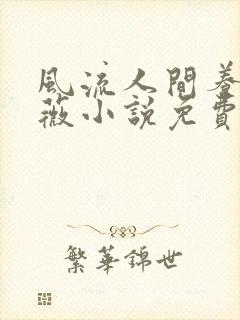 風流人間養
薇小說免費
繁華錦世